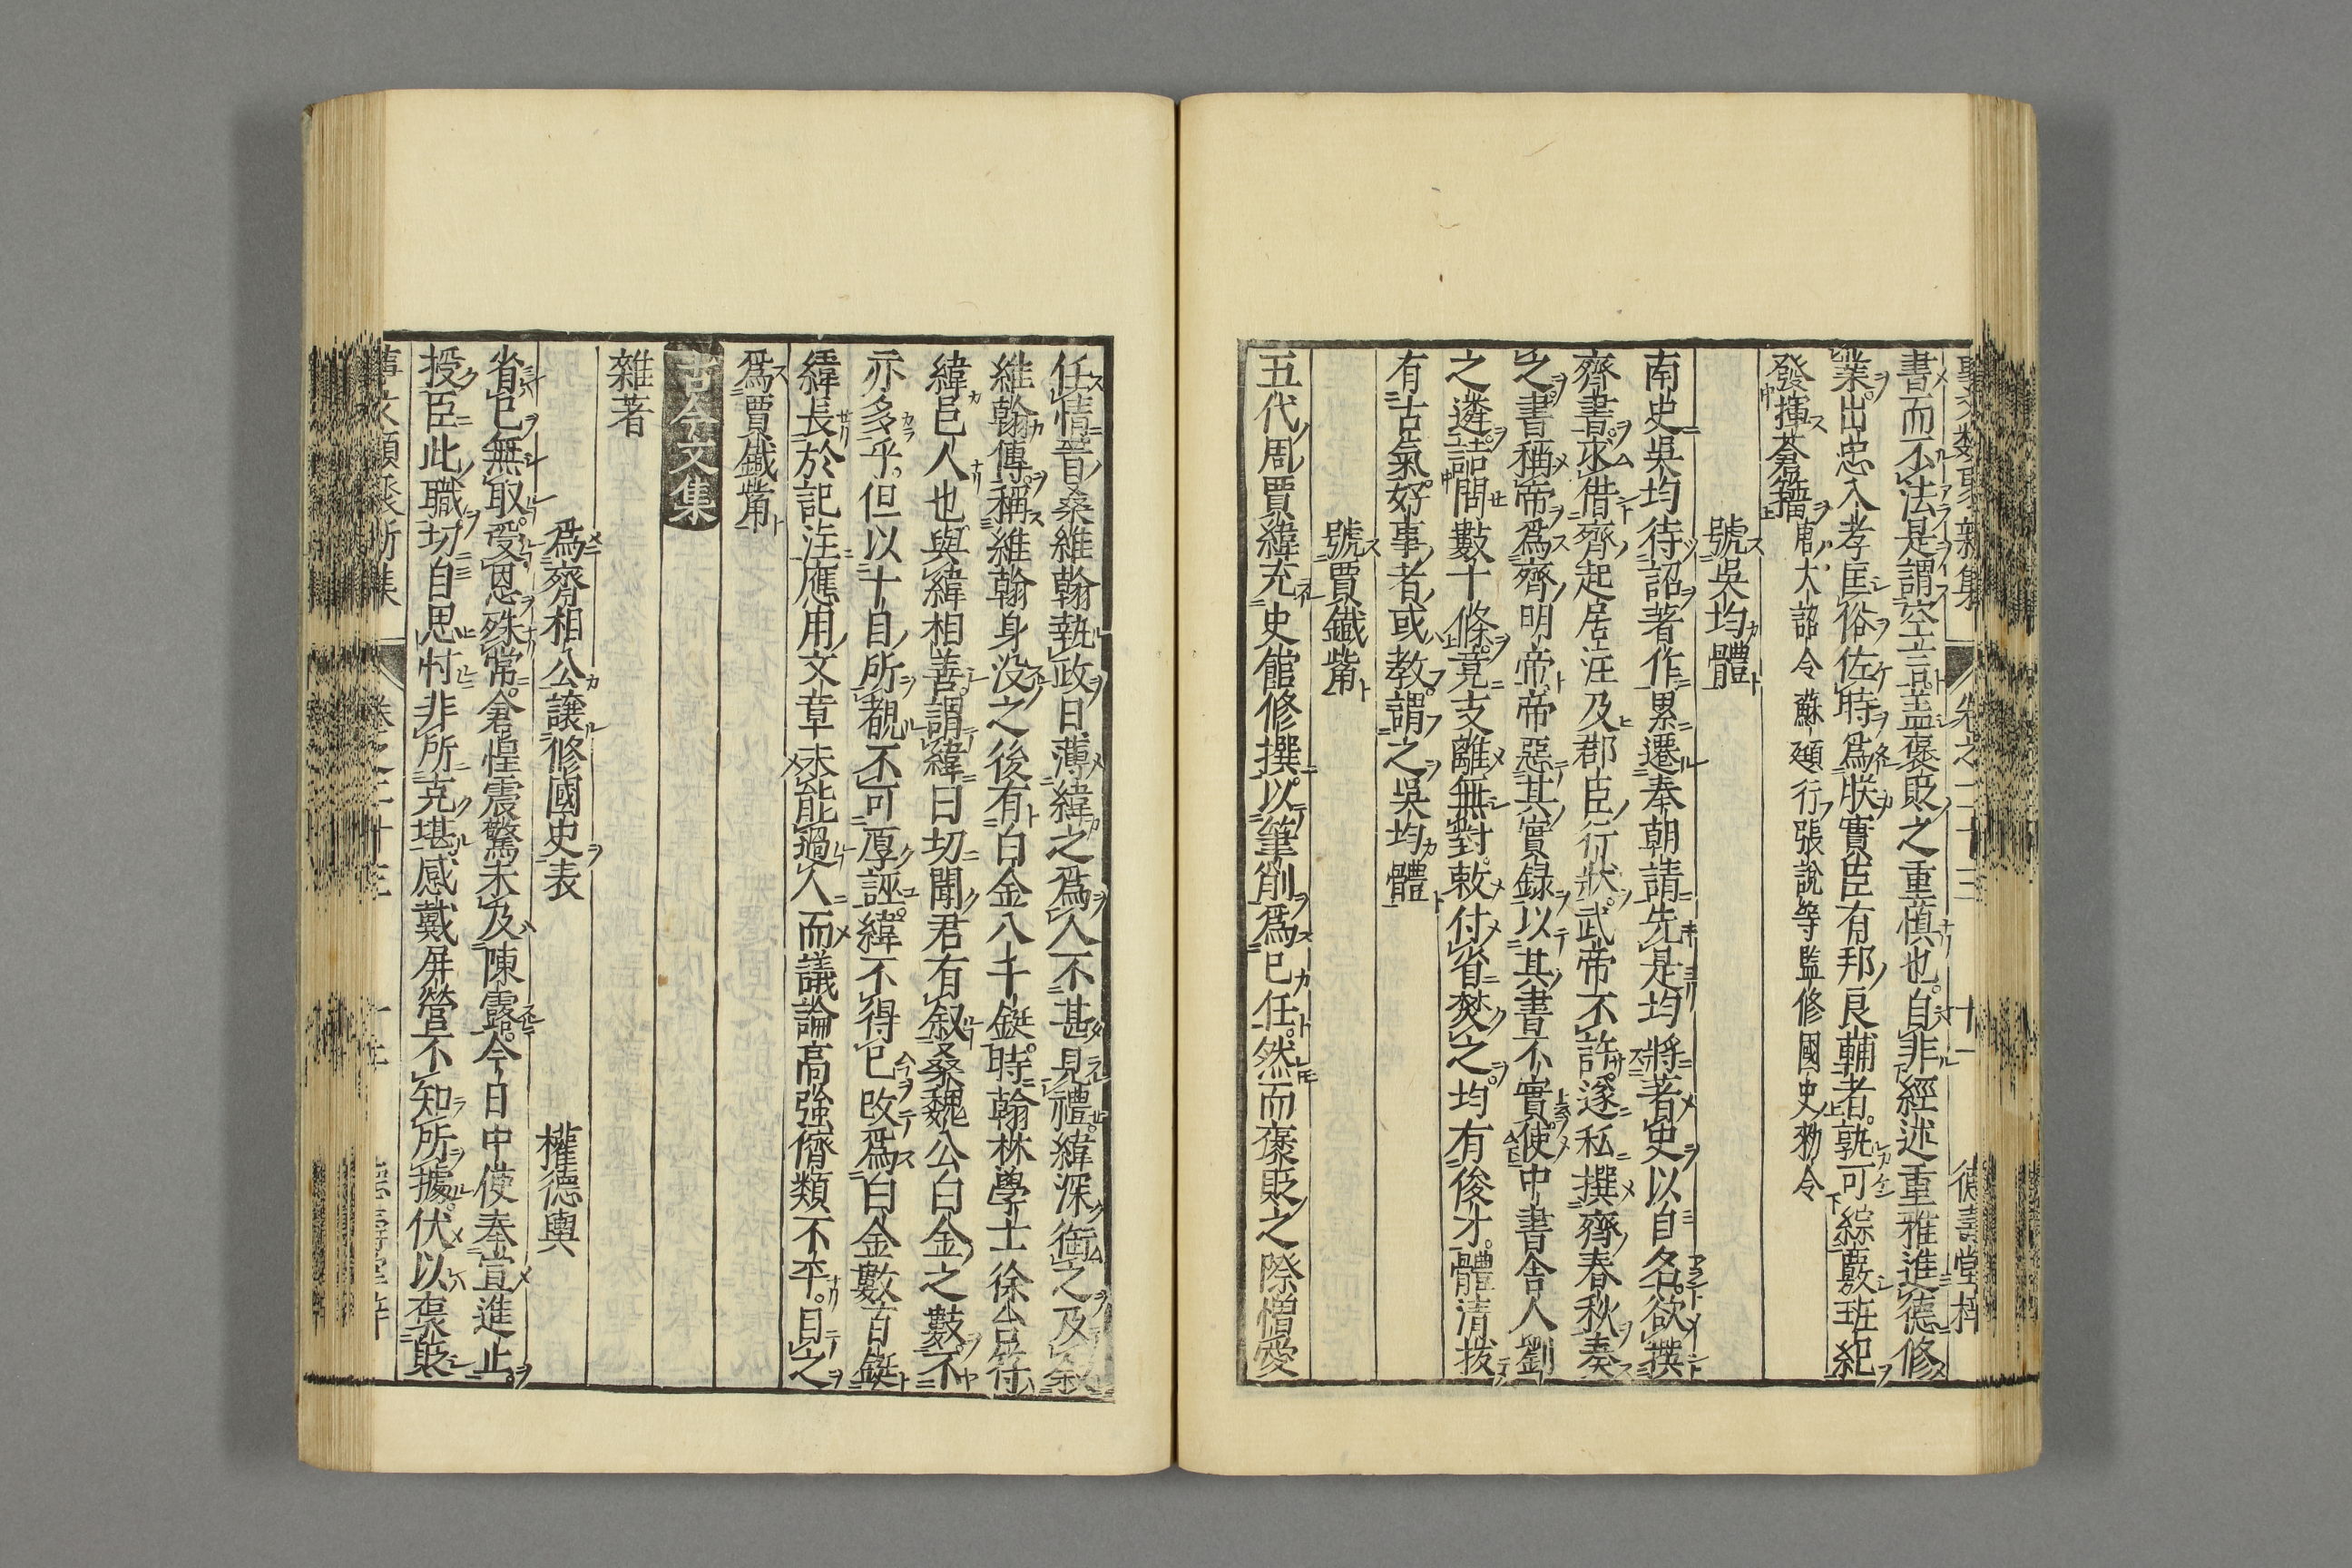 書而不法是謂空言蓋褒貶之重慎也自非經述重雅進德修
業出忠入孝匡俗佐時爲朕實臣有邦良輔者孰可綜覈班紀
發揮蒼籀唐大詔令蘇頲行張說等監修國史勑令
號吳均體
南史吳均待詔著作累遷奉朝請先是均將著史以自名欲撰
齊書求借齊起居注及郡臣行狀武帝不許遂私撰齊春秋奏
之書稱帝爲齊明帝帝惡其實録以其書不實使中書舍人劉
之遴詰問數十條竟支離無對敕付省焚之均有俊才體清拔
有古氣好事者或教謂之吳均體
號賈鐵觜
五代周賈緯充史館修撰以筆削爲已任然而褒貶之際憎愛
任情晉桑維翰執政日薄緯之爲人不甚見禮緯深銜之及叙
維翰傳稱維翰身没之後有白金八千鋌時翰林學士徐台符
緯邑人也與緯相善謂緯曰切聞君有叙桑魏公白金之數不
亦多乎但以十目所覩不可厚誣緯不得已改爲白金數百鋌
緯長於記注應用文章未能過人而議論高強儕類不平目之
爲賈鐵觜
古今文集
雜著
爲齊相公讓修國史表　權德輿
省已無取受恩殊常倉惶震驚未及陳露今日中使奉宣進止
授臣此職切自思忖非所克堪感戴屏營不知所據伏以褒貶